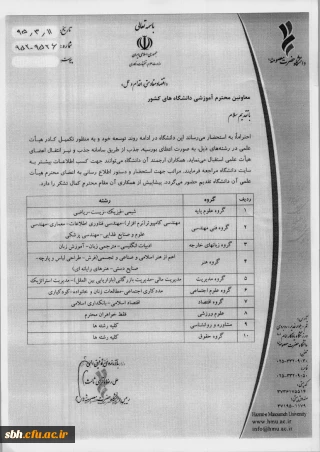 بسمه تعالی
تاریخ: ۹۵,۳,۱۱
شماره: ۹۵۲۰۹۵۲۶
جمهوری اسلامی ایران
معاونین محترم آموزشی دانشگاه های کشور
با تقدیم سلام
احتراماً به استحضار می‌رساند این دانشگاه در ادامه روند توسعه خود و به منظور تکمیل کادر هیأت
علمی در رشته‌های ذیل به صورت اعطای بورسیه، جذب از طریق سامانه جذب و نیز انتقال اعضای
هیأت علمی استقبال می‌نماید. همکاران ارجمند آن دانشگاه می‌توانند جهت کسب اطلاعات بیشتر به
سایت دانشگاه مراجعه فرمایند. مراتب جهت استحضار و دستور اطلاع رسانی به اعضای محترم هیأت
علمی آن دانشگاه تقدیم حضور می‌گردد. پیشاپیش از همکاری آن مقام محترم کمال تشکر را دارد.
ردیف گروه رشته
۱ گروه علوم پایه شیمی-فیزیک-زیست-ریاضی
۲ گروه فنی مهندسی مهندسی کامپیوتر(نرم افزار)- مهندسی فناوری اطلاعات- معماری- مهندسی
علوم و صنایع غذایی- مهندسی پزشکی
۳ گروه زبانهای خارجه ادبیات انگلیسی- مترجمی زبان- آموزش زبان
۴ گروه هنر اعم از هنر اسلامی و صنایع و تجسمی (فرش- طراحی لباس و پارچه-
صنایع دستی- هنرهای رایانه ای)
۵ گروه مدیریت مدیریت مالی-مدیریت بازرگانی(بازاریابی بین الملل)- مدیریت استراتژیک
۶ گروه علوم اجتماعی مددکاری اجتماعی-مطالعات زنان و خانواده-کودکیاری
۷ گروه اقتصاد اقتصاد اسلامی-بانکداری اسلامی
۸ علوم ورزشی فقط خواهران محترم
۹ مشاوره و روانشناسی کلیه رشته ها
۱۰ گروه حقوق کلیه رشته ها
Hazrate Masoumeh University
www.hmu.ac.ir
info@hmu.ac.ir
sbh.cfu.ac.ir